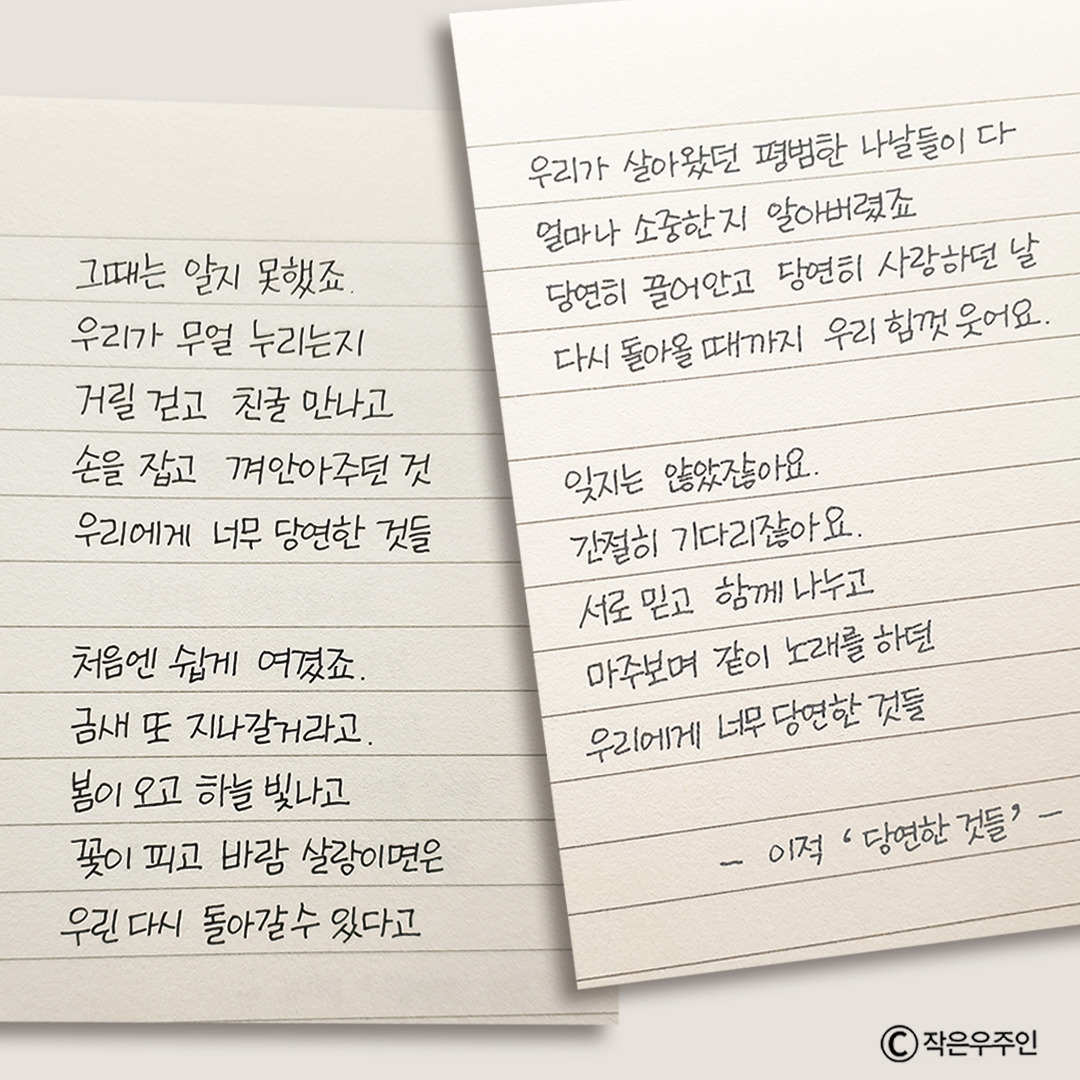 그때는 알지 못했죠.
우리가 무얼 누리는지
거릴 걷고 친굴 만나고
손을 잡고 껴안아주던 것
우리에게 너무 당연한 것들
처음엔 쉽게 여겼죠.
금새 또 지나갈거라고.
봄이 오고 하늘 빛나고
꽃이 피고 바람 살랑이면은
우린 다시 돌아갈 수 있다고
우리가 살아왔던 평범한 나날들이 다
얼마나 소중한지 알아버렸죠
당연히 끌어안고 당연히 사랑하던 날
다시 돌아올 때까지 우리 힘껏 웃어요.
잊지는 않았잖아요.
간절히 기다리잖아요.
서로 믿고 함께 나누고
마주보며 같이 노래를 하던
우리에게 너무 당연한 것들
- 이적 ‘당연한 것들’ -
ⓒ작은우주인